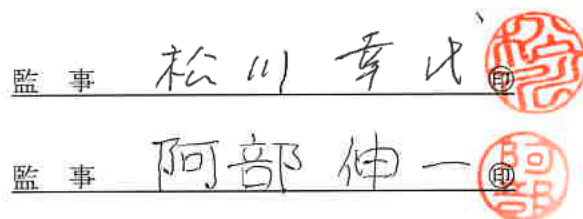 監 事 松川 幸代 ㊞
監 事 阿部 伸一 ㊞ 阿部